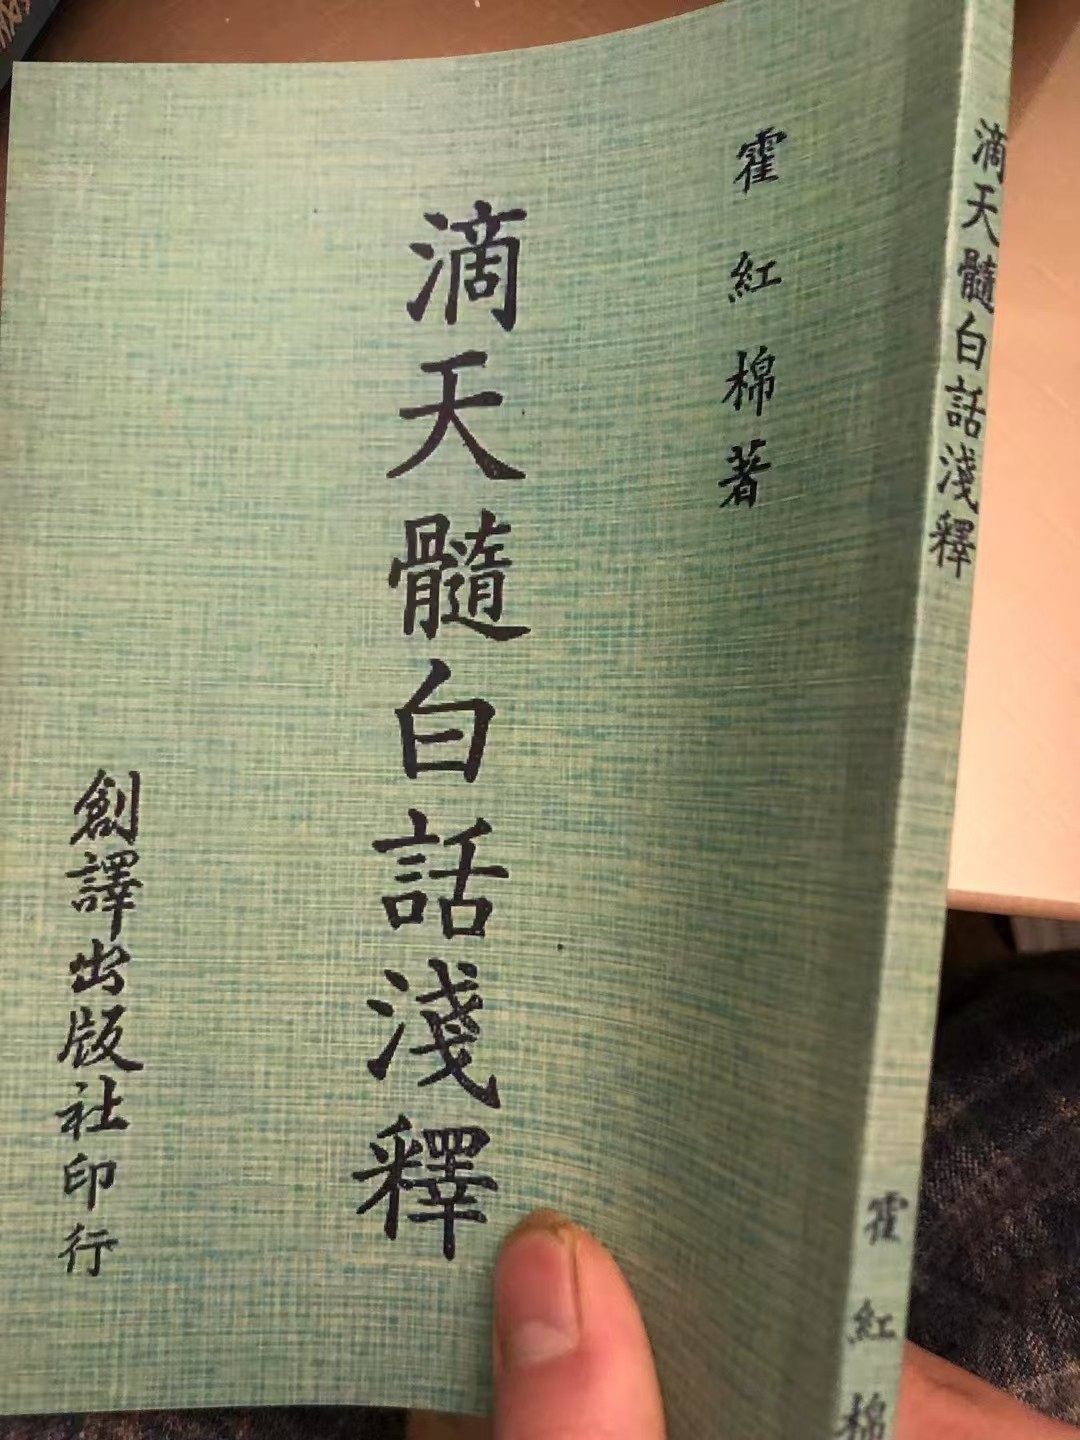 霍紅棉著
滴天髓白話淺釋
創譯出版社印行
滴天髓白話淺釋
霍紅棉